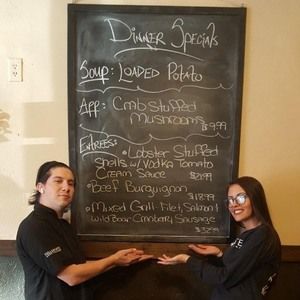 Dinner Specials
Soup: Loaded Potato
App: Crab Stuffed
Mushrooms
$9.99
Entrées:
• Lobster Stuffed
Shells w/ Vodka Tomato
Cream Sauce $21.99
• Beef Burguignon
$18.99
• Mixed Grill Filet, Salmon &
Wild Boar Cranberry Sausage
$32.99